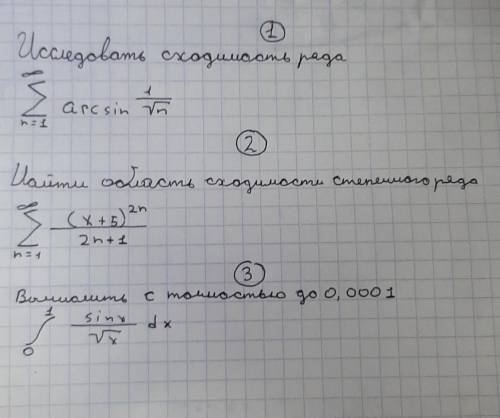 ①
Исследовать сходимость ряда
∑_{n=1}^{∞} arcsin 1/√n
②
Найти область сходимости степенного ряда
∑_{n=1}^{∞} (x+5)^{2n} / 2n+1
③
Вычислить с точностью до 0,0001
∫_0^1 sinx/√x dx